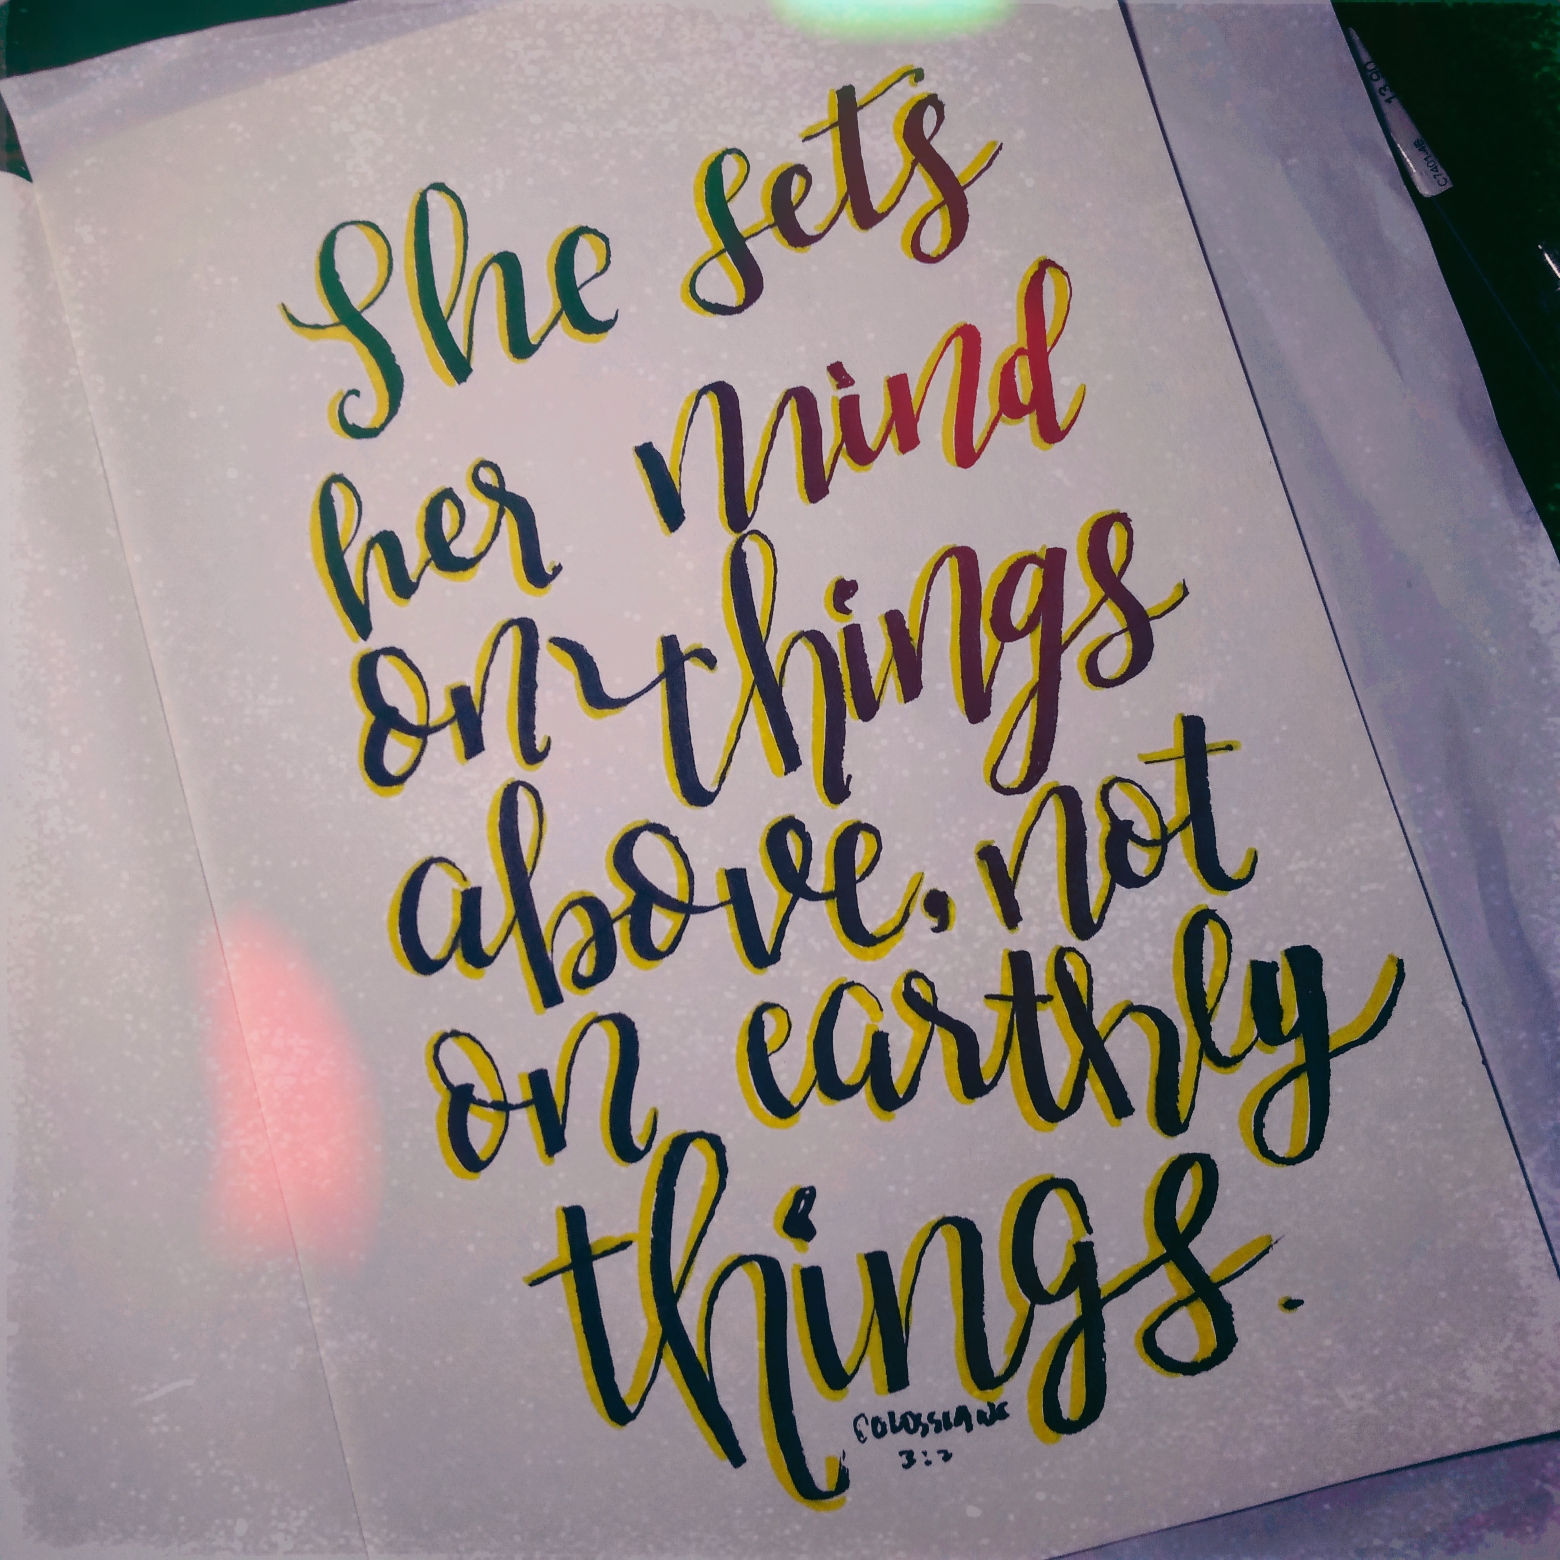 She sets
her mind
on things
above, not
on earthly
things.
COLOSSIANS
3:2
13.90
C7401-48